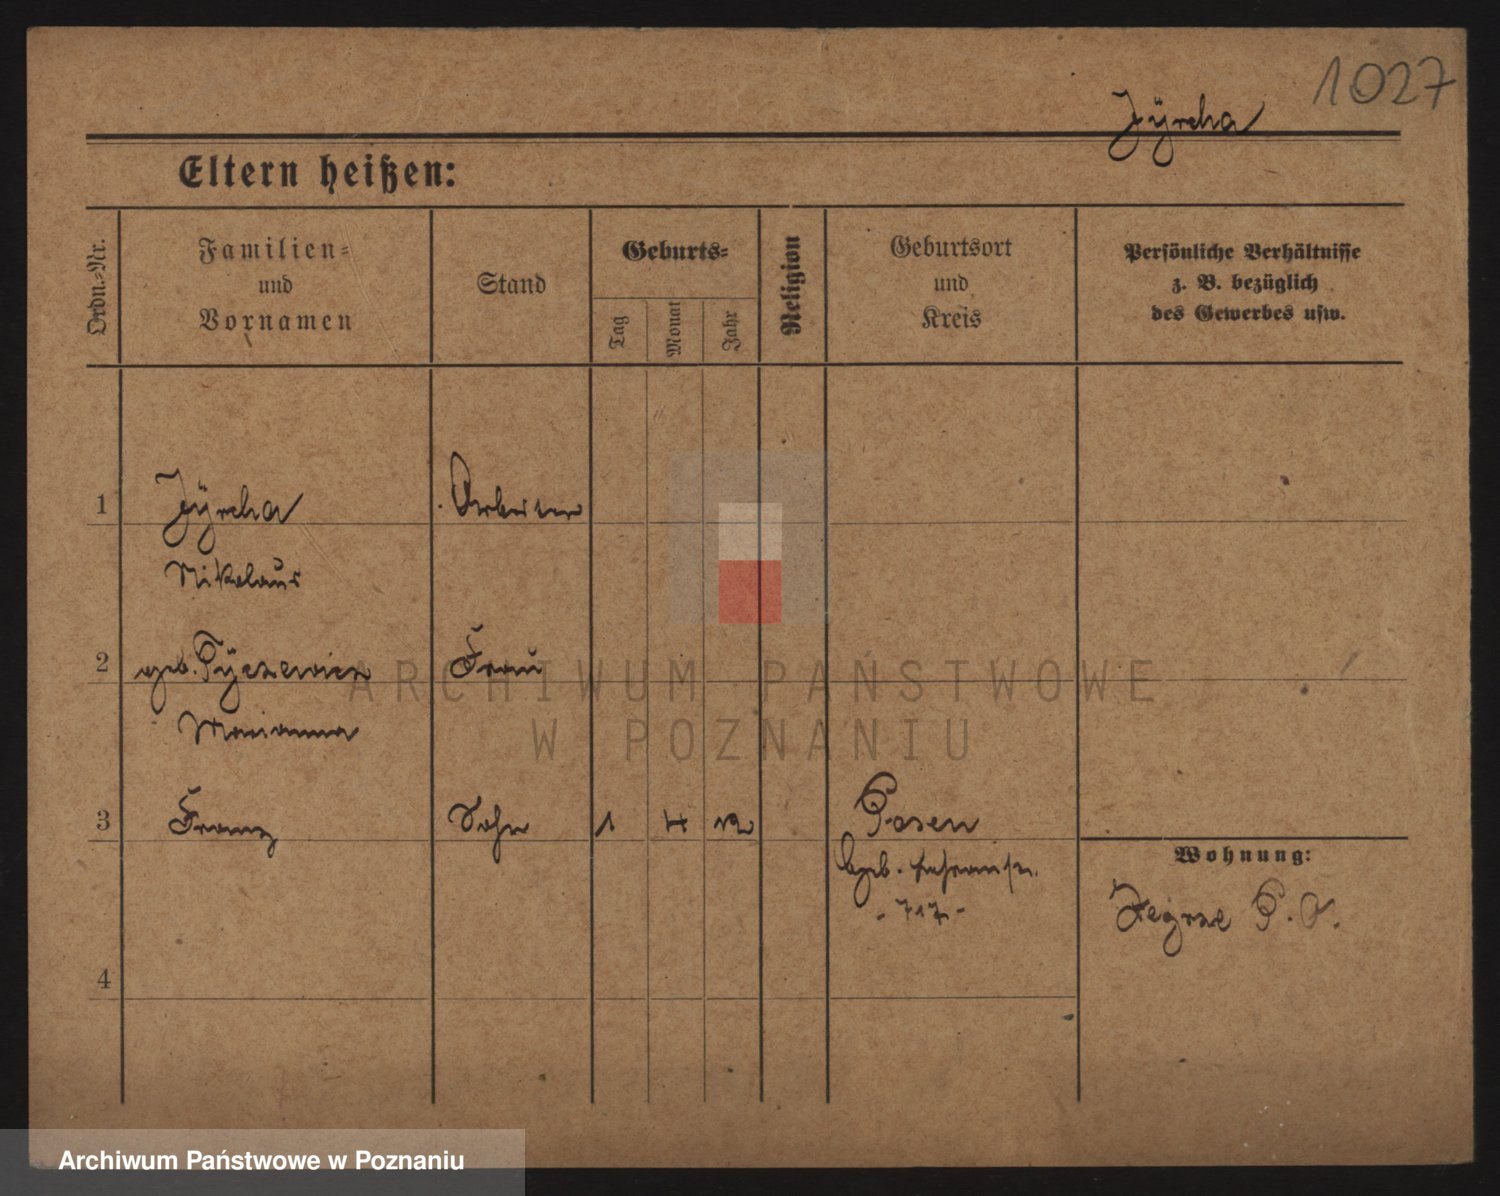 1027
Zÿrcha
Eltern heißen:
Ordn.-Nr.
Familien-
und
Vornamen
Stand
Geburts-
Tag
Monat
Jahr
Religion
Geburtsort
und
Kreis
Persönliche Verhältnisse
z. B. bezüglich
des Gewerbes usw.
1
Zÿrcha
Arbeiter
Nikolaus
2
geb.
Frau
Marianna
3
Franz
Sohn
1
4
12
Posen
Wohnung:
- 717 -
Zegrze P. O.
4
ARCHIWUM PAŃSTWOWE
W POZNANIU
Archiwum Państwowe w Poznaniu